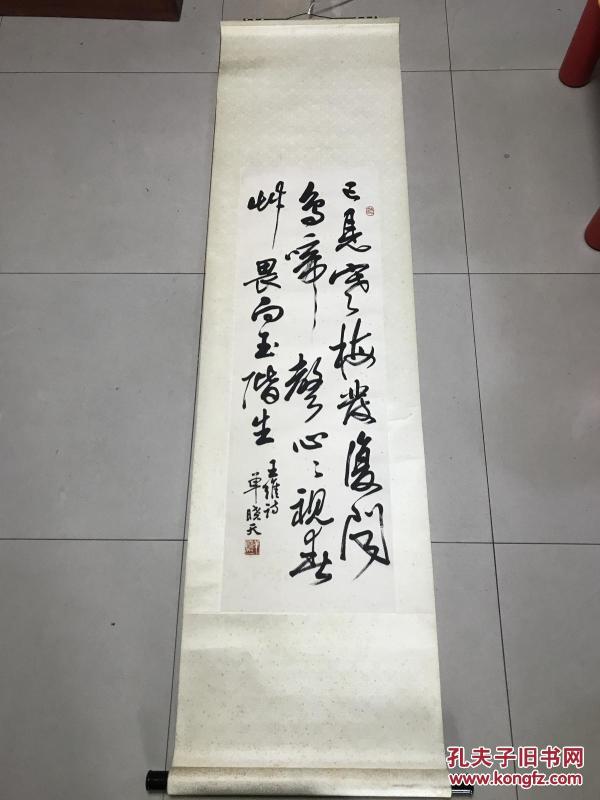 已見寒梅發復聞
鳥啼聲心心視春
艸畏向玉階生
王維诗
單曉天
孔夫子旧书网
www.kongfz.com